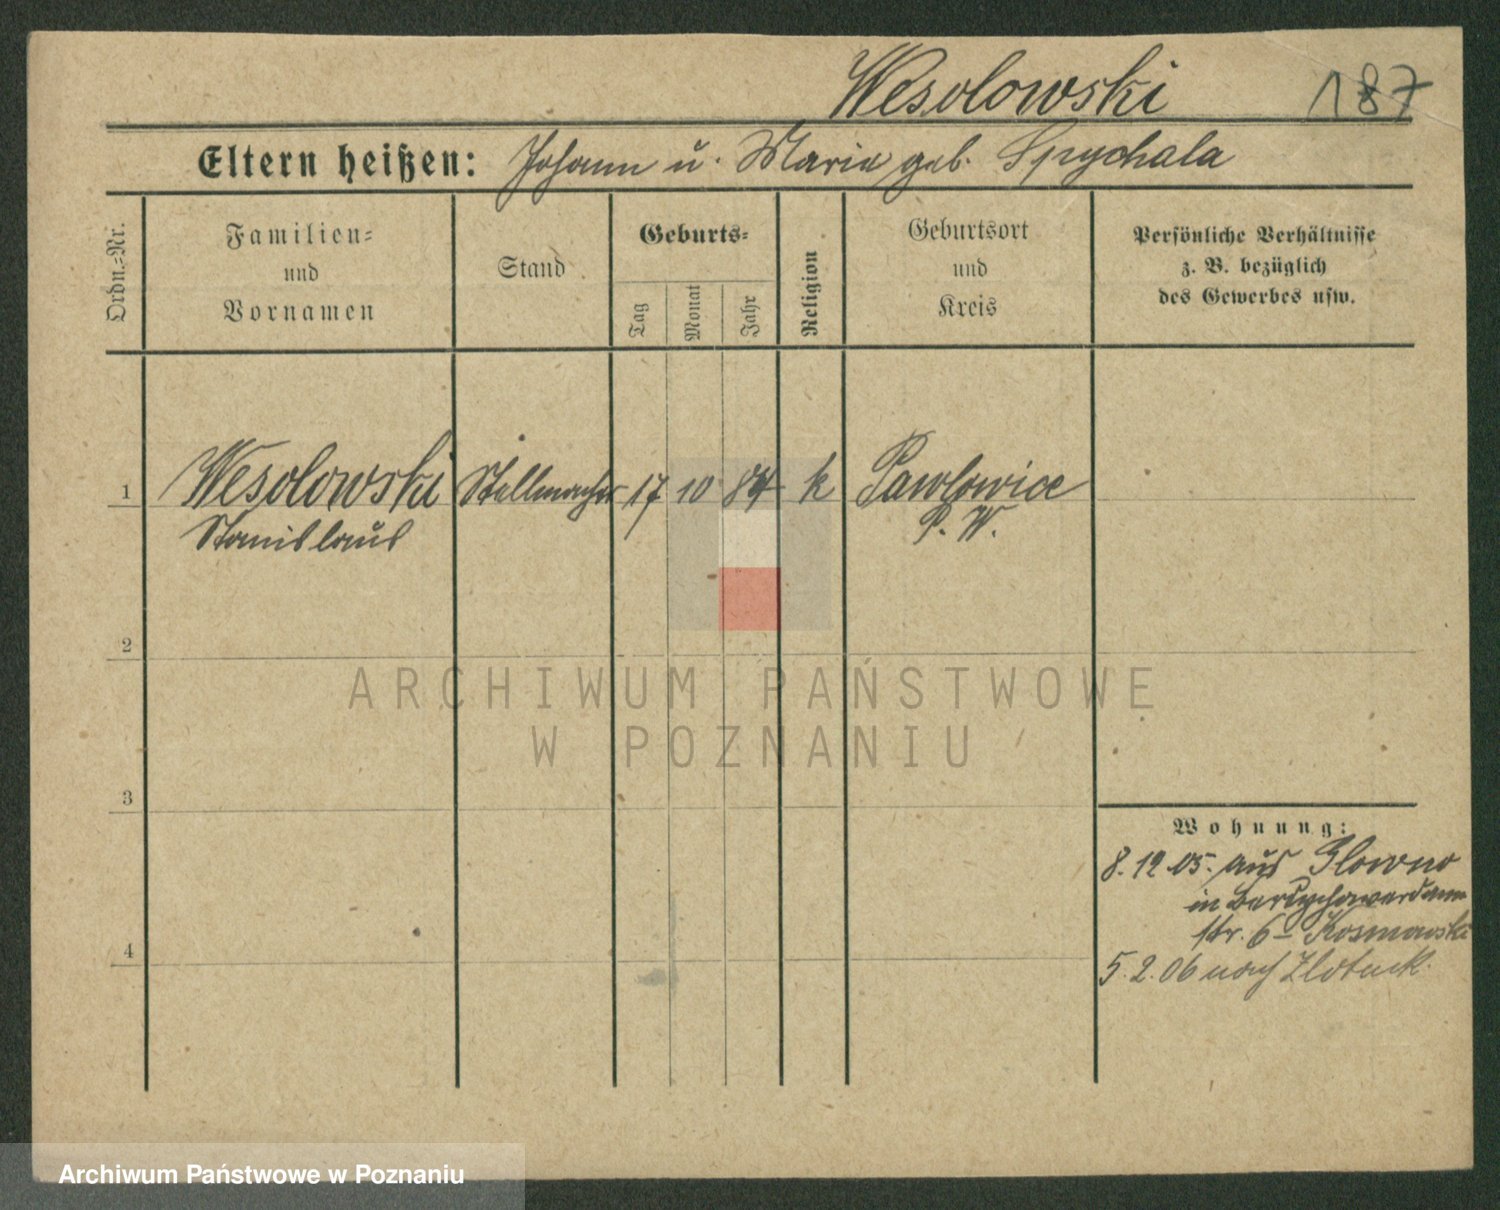 Wesolowski 187
Eltern heißen: Johann u. Maria geb. Spychala
Ordn.-Nr.
Familien-
und
Vornamen
Stand
Geburts-
Tag
Monat
Jahr
Religion
Geburtsort
und
Kreis
Persönliche Verhältnisse
z. B. bezüglich
des Gewerbes usw.
1 Wesolowski Stellmacher 17 10 84 k Pawlowice
Stanislaus P. W.
2
3
4
Wohnung:
8. 12 05. aus Glowno
in
str. 6 - Kosmowski
5. 2. 06 nach
ARCHIWUM PAŃSTWOWE
W POZNANIU
Archiwum Państwowe w Poznaniu